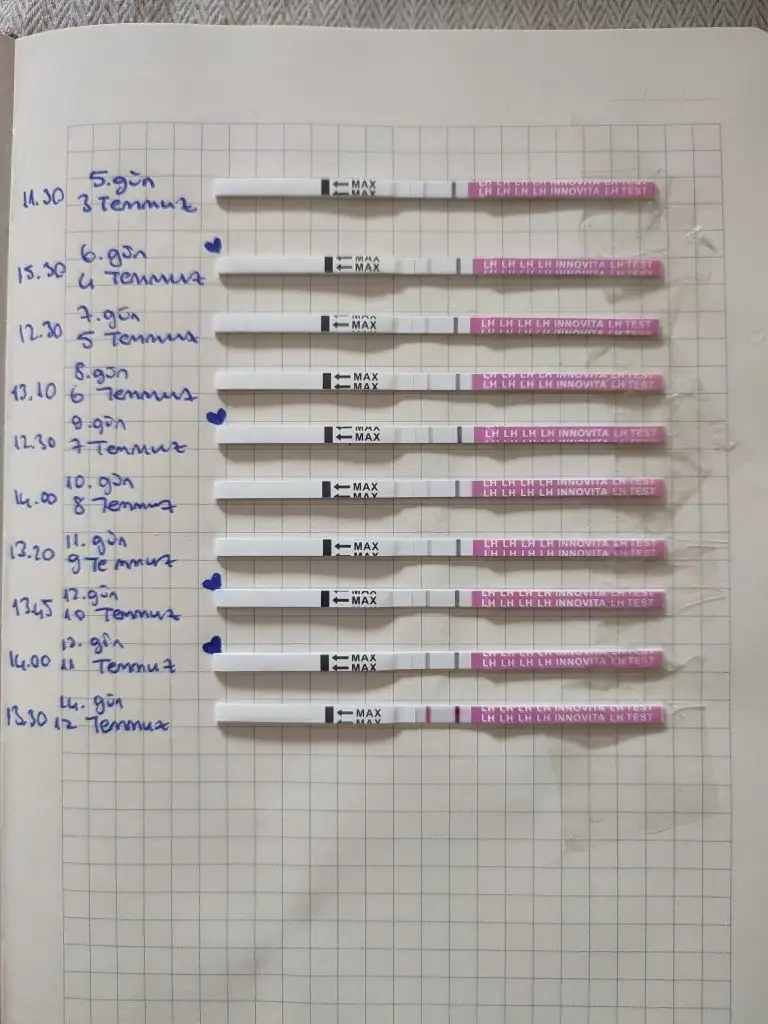 11.30
5.gün
3 Temmuz
← MAX
← MAX
LH LH LH LH INNOVITA LH TEST
LH LH LH LH INNOVITA LH TEST
15.30
6.gün
4 Temmuz
← MAX
← MAX
LH LH LH LH INNOVITA LH TEST
12.30
7.gün
5 Temmuz
← MAX
← MAX
LH LH LH LH INNOVITA LH TEST
13.10
8.gün
6 Temmuz
← MAX
← MAX
LH LH LH LH INNOVITA LH TEST
LH LH LH LH INNOVITA LH TEST
12.30
9.gün
7 Temmuz
← MAX
← MAX
LH LH LH LH INNOVITA LH TEST
14.00
10.gün
8 Temmuz
← MAX
← MAX
LH LH LH LH INNOVITA LH TEST
LH LH LH LH INNOVITA LH TEST
13.20
11.gün
9 Temmuz
← MAX
LH LH LH LH INNOVITA LH TEST
LH LH LH LH INNOVITA LH TEST
13.45
12.gün
10 Temmuz
← MAX
← MAX
LH LH LH LH INNOVITA LH TEST
LH LH LH LH INNOVITA LH TEST
14.00
13.gün
11 Temmuz
← MAX
← MAX
LH LH LH LH INNOVITA LH TEST
LH LH LH LH INNOVITA LH TEST
13.30
14.gün
12 Temmuz
← MAX
← MAX
LH LH LH LH INNOVITA LH TEST
LH LH LH LH INNOVITA LH TEST